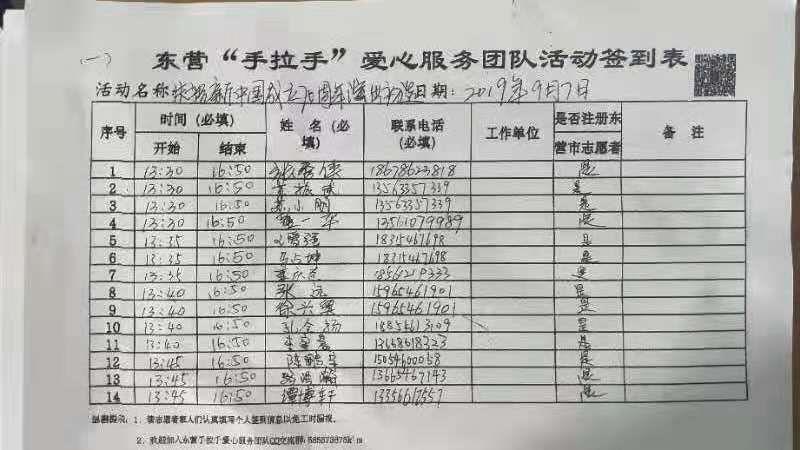 (一)
东营“手拉手”爱心服务团队活动签到表
活动名称 新中国成立70周年演出 日期: 2019年9月7日
序号 时间(必填) 姓 名(必填) 联系电话(必填) 工作单位 是否注册东营市志愿者 备 注
开始 结束
1 13:30 16:50 18678623818 是
2 13:30 16:50 13563357339 是
3 13:30 16:50 苏小刚 13563357339 是
4 13:30 16:50 一华 13561079989 是
5 13:35 16:50 18315467698 是
6 13:35 16:50 马占坤 18315467698 是
7 13:35 16:50 是
8 13:40 16:50 张 远 15965461901 是
9 13:40 16:50 徐兴 15965461901 是
10 13:40 16:50 孔令扬 是
11 13:40 16:50 13658618323 是
12 13:45 16:50 陈 15054600058 是
13 13:45 16:50 13665467143 是
14 13:45 16:50 谭博轩 是
温馨提示:1、请志愿者家人们认真填写个人签到信息以免工时漏报。
2、欢迎加入东营手拉手爱心服务团队QQ交流群: